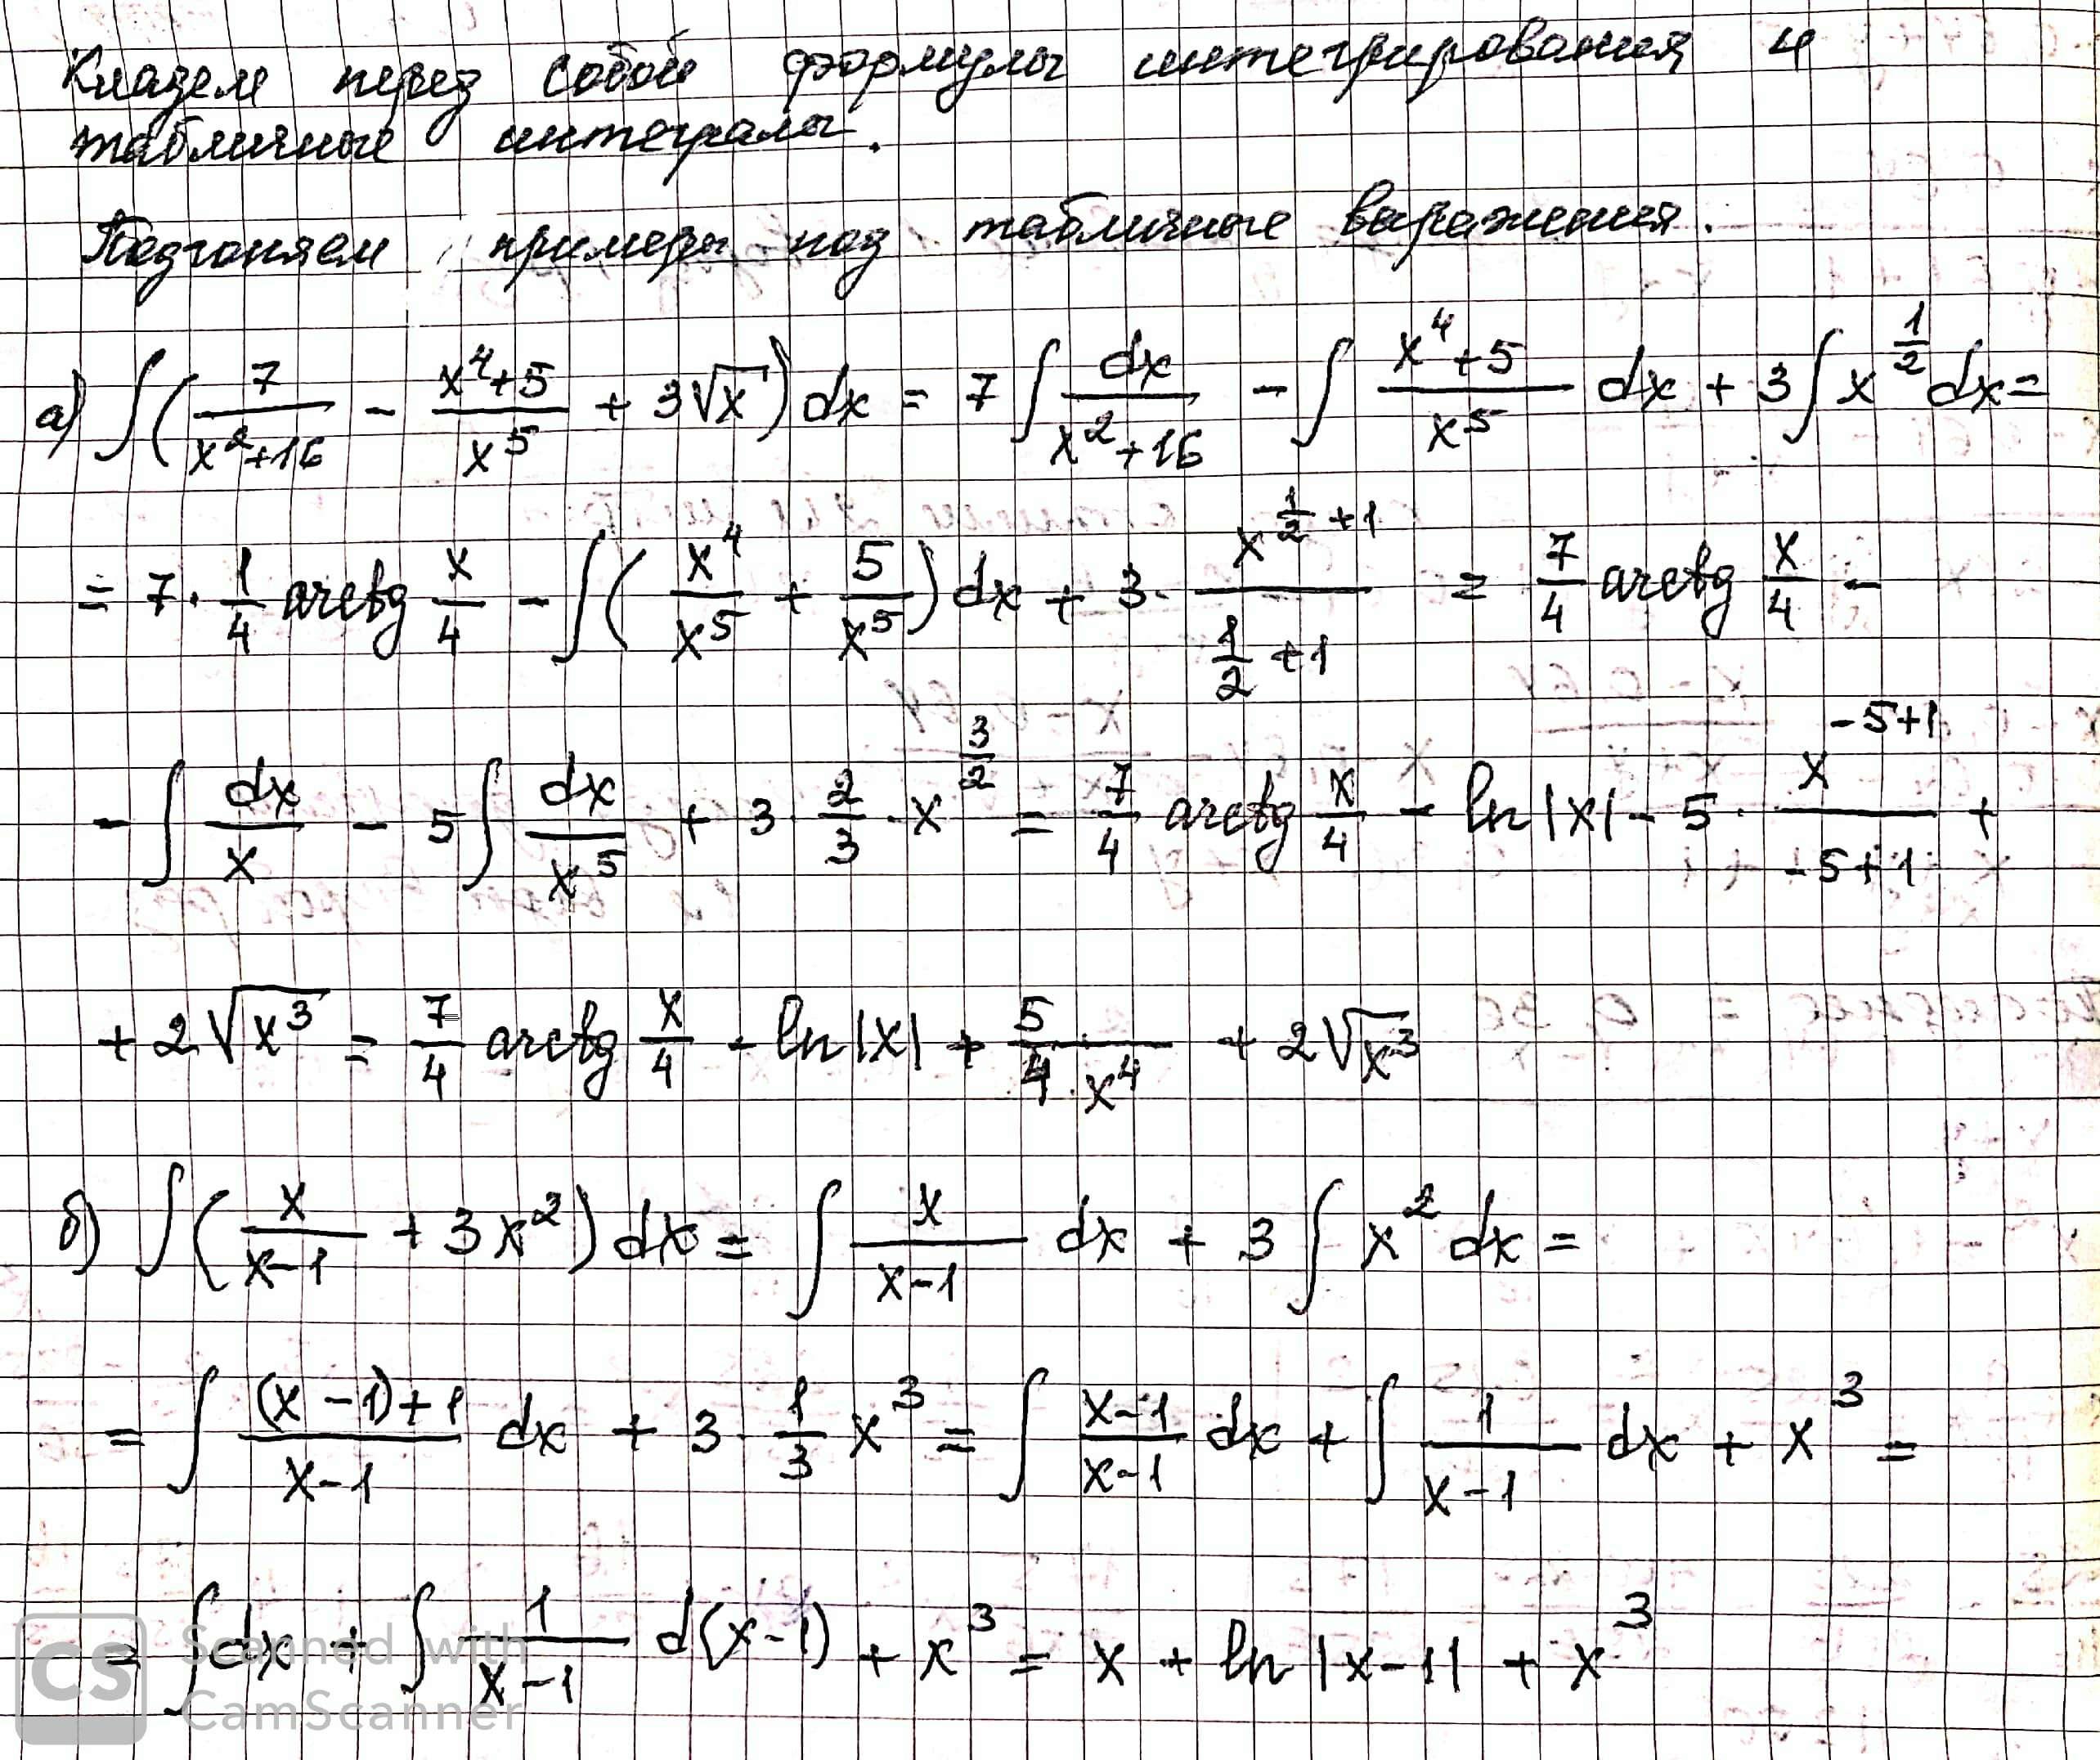 Кладем перед собой формулы интегрирования и
табличные интегралы.
Подгоняем примеры под табличные выражения.
а) ∫(7/(x²+16) − (x⁴+5)/x⁵ + 3√x) dx = 7∫dx/(x²+16) − ∫(x⁴+5)/x⁵ dx + 3∫x^(1/2) dx =
= 7·1/4 arctg x/4 − ∫(x⁴/x⁵ + 5/x⁵) dx + 3· x^(1/2+1)/(1/2+1) = 7/4 arctg x/4 −
− ∫dx/x − 5∫dx/x⁵ + 3·2/3·x^(3/2) = 7/4 arctg x/4 − ln|x| − 5· x^(−5+1)/(−5+1) +
+ 2√x³ = 7/4 arctg x/4 − ln|x| + 5/(4·x⁴) + 2√x³
б) ∫(x/(x−1) + 3x²) dx = ∫x/(x−1) dx + 3∫x² dx =
= ∫((x−1)+1)/(x−1) dx + 3·1/3 x³ = ∫(x−1)/(x−1) dx + ∫1/(x−1) dx + x³ =
= ∫dx + ∫1/(x−1) d(x−1) + x³ = x + ln|x−1| + x³
CS Scanned with
CamScanner